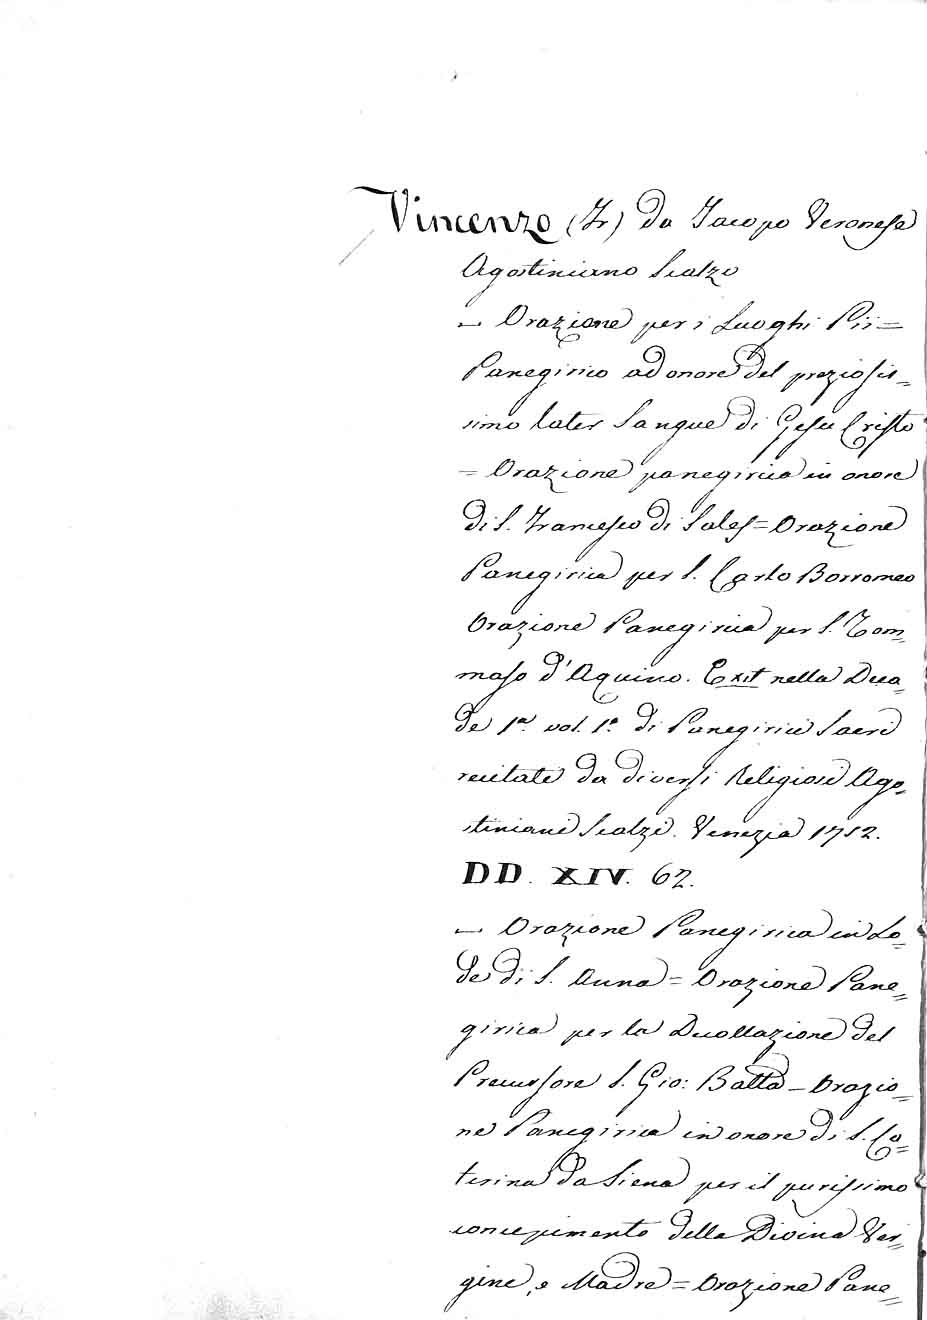 Vincenzo (Fr) da Jacopo Veronese
Agostiniano Scalzo
— Orazione per i Luoghi Pii =
Panegirico ad onore del preziosis=
simo later Sangue di Gesu Cristo
= Orazione panegirica in onore
di S. Francesco di Sales = Orazione
Panegirica per S. Carlo Borromeo
Orazione Panegirica per S. Tom=
maso d'Aquino. Exit nella Deca=
de 1.a vol. 1.o di Panegirici Sacri
recitate da diversi Religiosi Ago=
stiniani Scalzi. Venezia 1752.
DD. XIV. 62.
— Orazione Panegirica in Lo=
de di S. Anna = Orazione Pane=
girica per la Decollazione del
Precursore S. Gio: Batta — Orazio=
ne Panegirica in onore di S. Ca=
terina da Siena per il purissimo
concepimento della Divina Ver=
gine, e Madre = Orazione Pane=